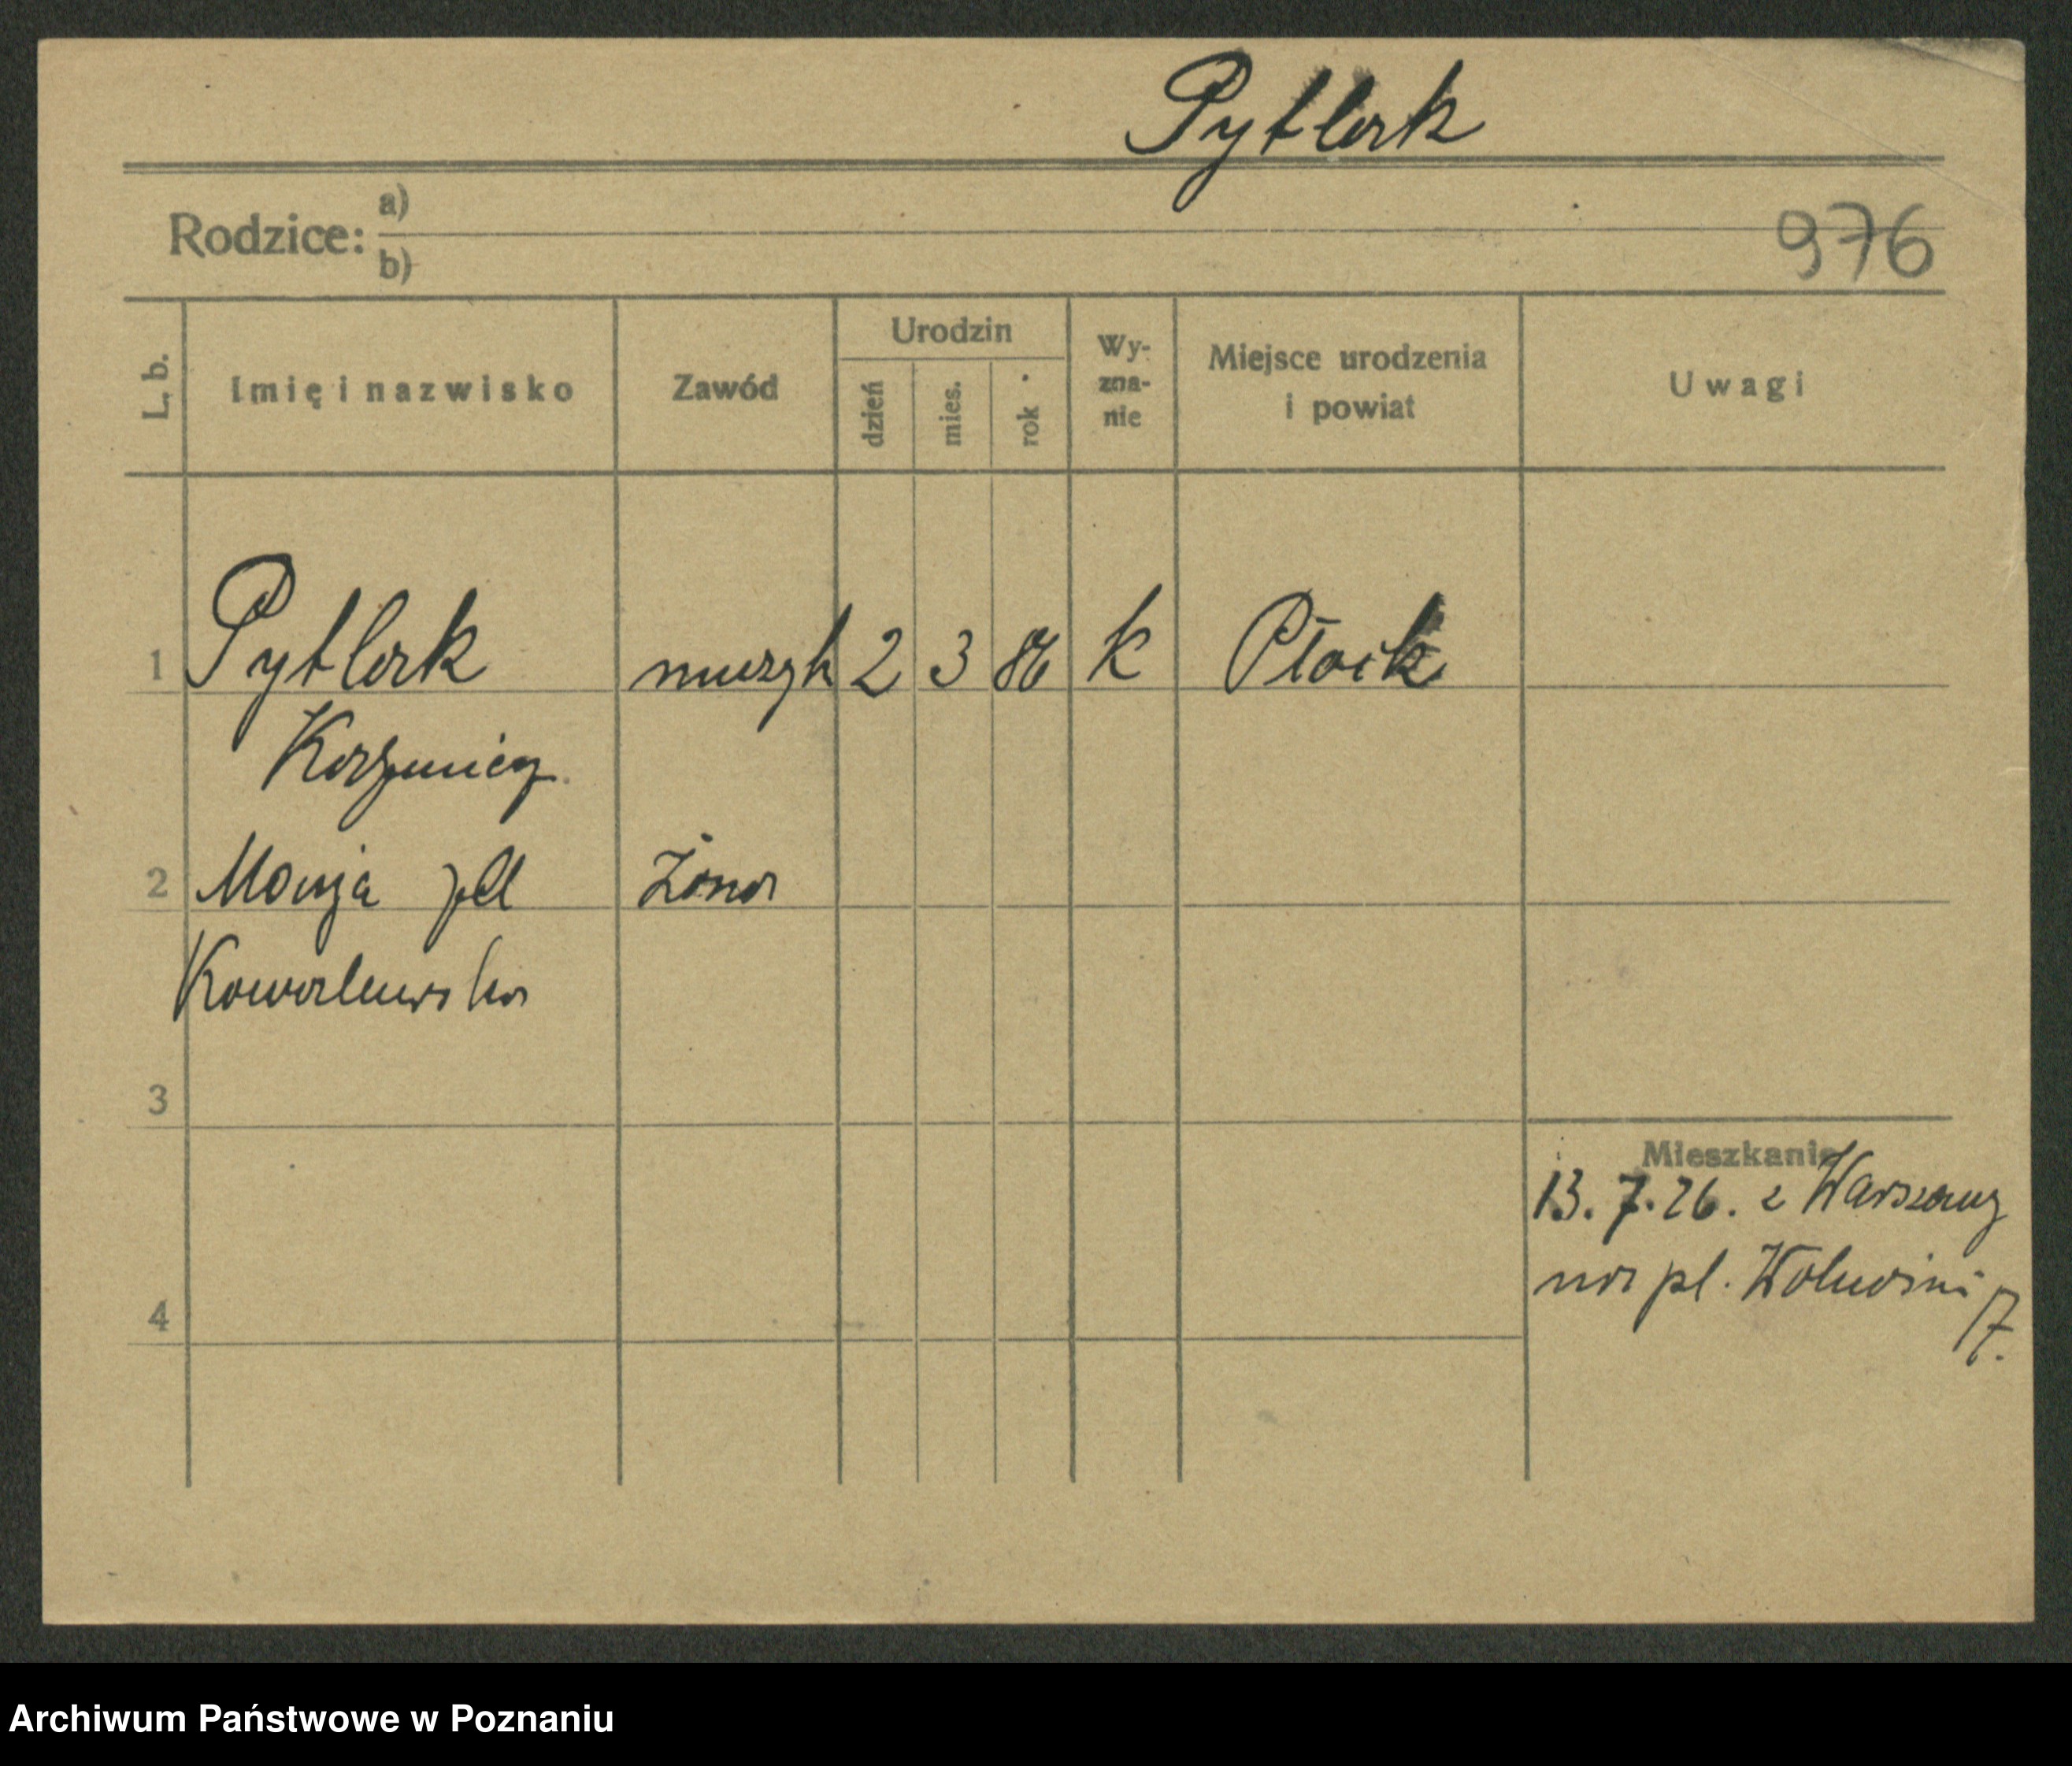 Pytlak
Rodzice: a)
b)
976
L. b. Imię i nazwisko Zawód Urodzin dzień mies. rok Wy-zna-nie Miejsce urodzenia i powiat Uwagi
1 Pytlak muzyk 2 3 86 K Płock
Kazimierz
2 Marja żona
Kowalewska
3
Mieszkanie
13.7.26. z Warszawy
na pl.
4
7.
Archiwum Państwowe w Poznaniu